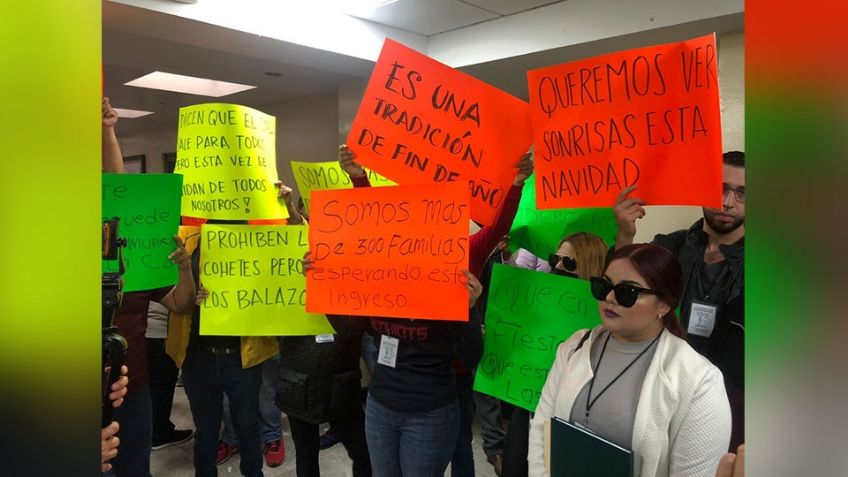 DICEN QUE EL SOL
SALE PARA TODOS
PERO ESTA VEZ SE
OLVIDAN DE TODOS
NOSOTROS!
ES UNA
TRADICIÓN
DE FIN DE AÑO
QUEREMOS VER
SONRISAS ESTA
NAVIDAD
SOMOS
PROHIBEN
COHETES PERO
LOS BALAZO
Somos mas
De 300 Familias
esperando este
Ingreso.
Que en
Fiesta
Que este
Las
Puede